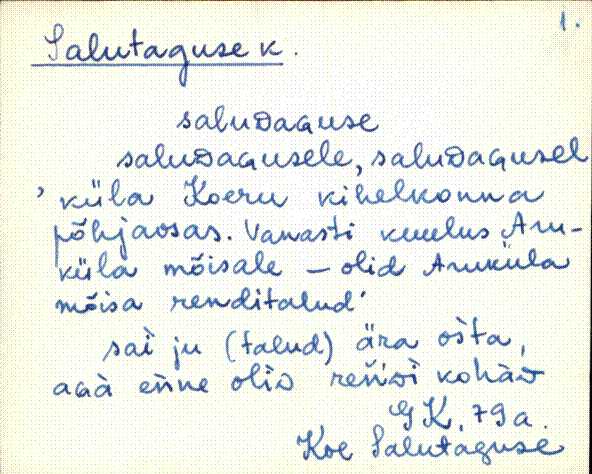 1.
Salutaguse k.
saluᴅaguse
saluᴅagusele, saluᴅagusel
'küla Koeru kihelkonna
põhjaosas. Vanasti kuulus Aru-
küla mõisale – olid Aruküla
mõisa renditalud'
sai ju (talud) ära ošta,
aGà eǹne oliᴅ reǹᴅi kohàᴅ
GK, 79a.
Koe Salutaguse